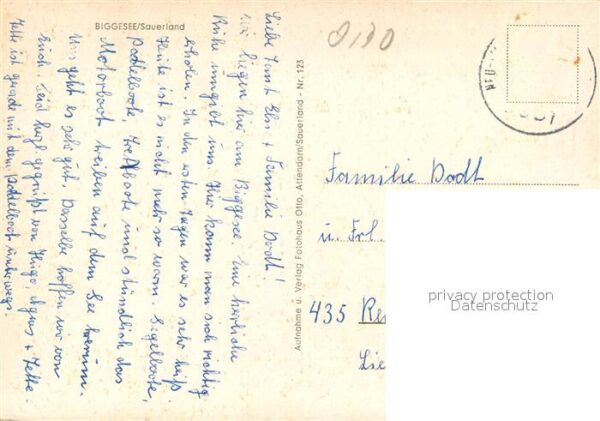 BIGGESEE/Sauerland
0130
Liebe Ernst Els. + Familie Dodt!
Wir liegen hier am Biggesee. Eine herrliche
Ruhe umgibt uns. Hier kann man sich richtig
erholen. In den ersten Tagen war es sehr heiß.
Heute ist es nicht mehr so warm. Segelboote,
Paddelboote, Tretboote und stündlich das
Motorboot treiben auf dem See herum.
Uns geht es sehr gut. Dasselbe hoffen wir von
Euch. Seid herzl. gegrüßt von Hugo, Agnes + Jette.
Jette ist gerade mit dem Paddelboot unterwegs.
Aufnahme u. Verlag Fotohaus Otto, Attendorn/Sauerland - Nr. 123
Familie Dodt
u. Frl.
435 Re
Lie
privacy protection
Datenschutz